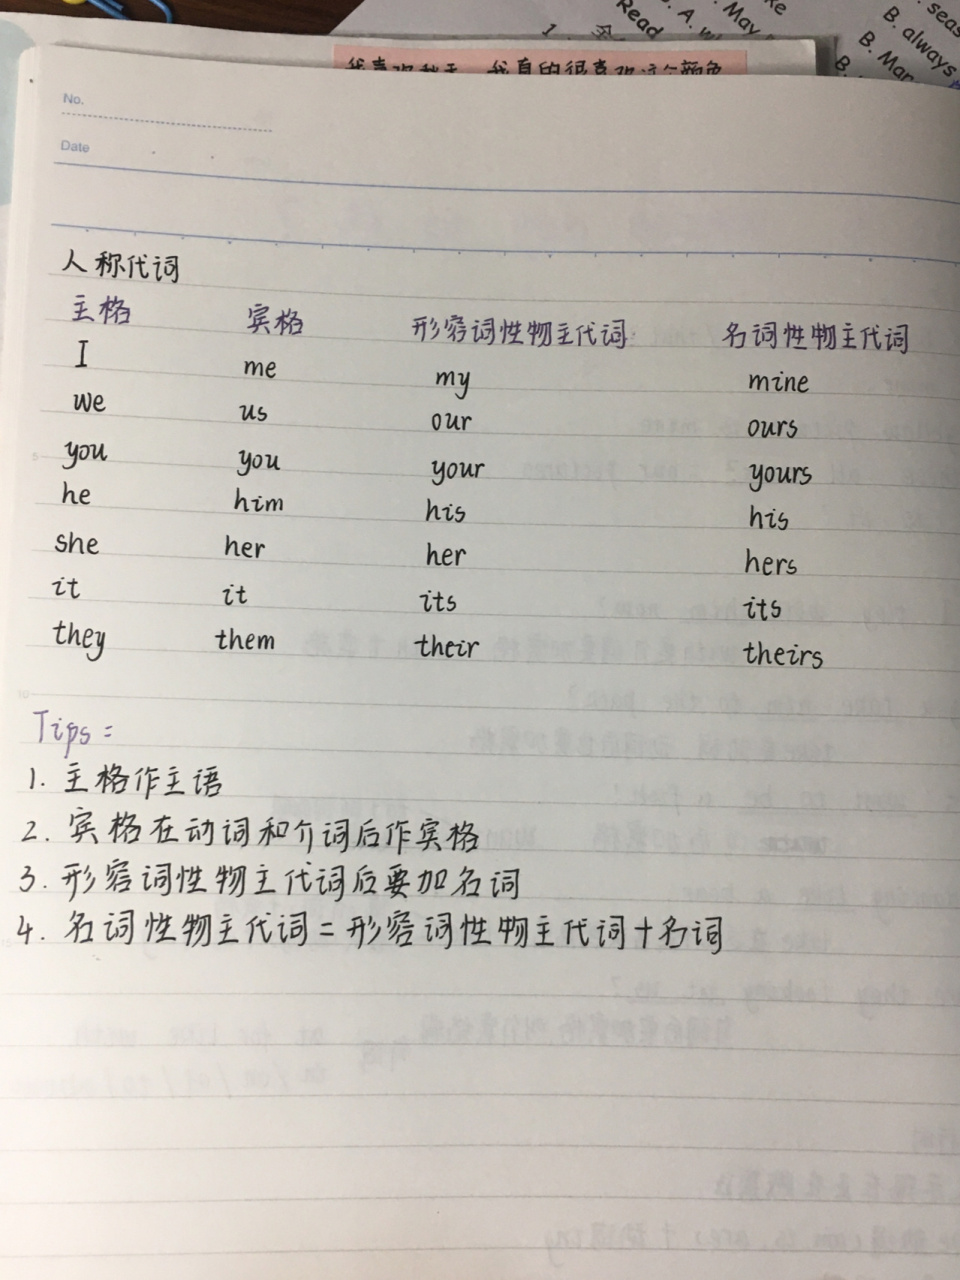 Read
1.
A.
May
B. always
B. Mar
B.
我喜欢秋天，我真的很喜欢这个颜色
No.
Date
人称代词
主格 宾格 形容词性物主代词 名词性物主代词
I me my mine
we us our ours
you you your yours
he him his his
she her her hers
it it its its
they them their theirs
Tips:
1. 主格作主语
2. 宾格在动词和介词后作宾格
3. 形容词性物主代词后要加名词
4. 名词性物主代词=形容词性物主代词+名词